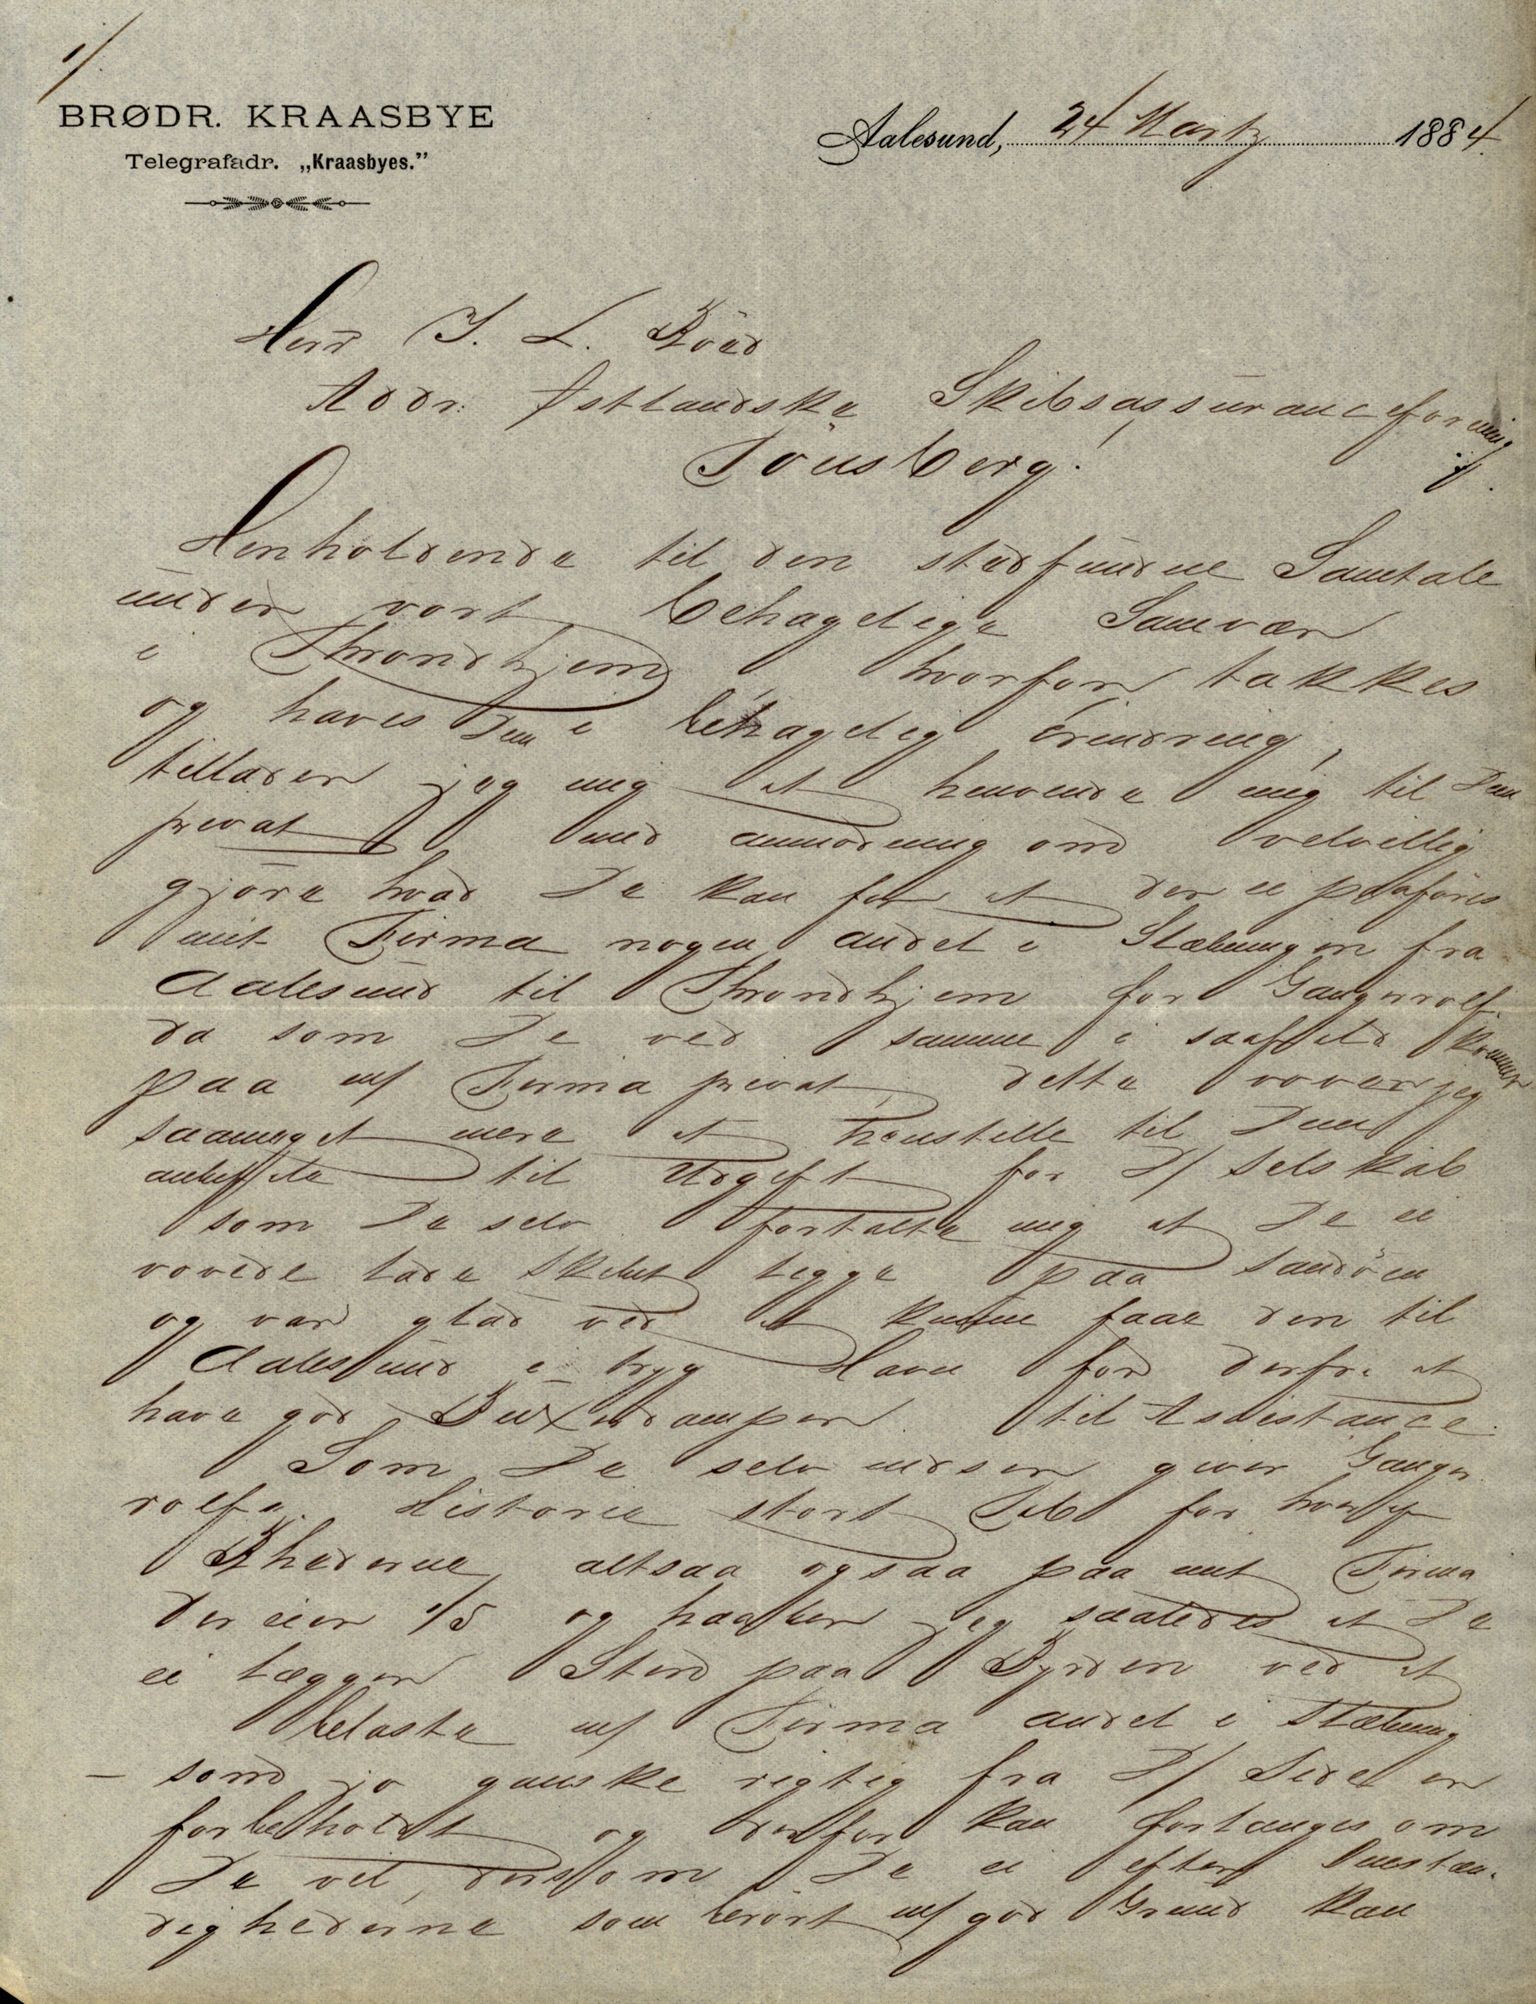 1/
BRØDR. KRAASBYE
Telegrafadr. „Kraasbyes.”
Aalesund, 24 Martz 1884
Herr J. L. Röed
Addr: Østlandske Skibsassuranceforening
Tönsberg!
Henholdende til den stedfundne Samtale
under vort behagelige Samvær
i Throndhjem hvorfor takkes
og haves Dem i behagelig erindring,
tillader jeg mig at henvende mig til Dem
privat med anmodning om velvillig
gjöre hvad De kan for at der ei paaföres
mit Firma nogen andel i Slæbningen fra
Aalesund til Throndhjem for Gangerrolf
da som De ved samme i saafald kommer
paa m/ Firma privat, dette vover jeg
saameget mere at henstille til Dem
anbefale til Udgift for D/ Selskab
som De selv fortalte mig at De ei
vovede lade Skibet ligge paa Sandöen
og var glad ved at kunne faae den til
Aalesund i tryg Havn for derfra at
have god Buxerdamper til Assistance.
Som De selv indser giver Ganger
rolfs Historie stort Tab for
Rhederne, altsaa ogsaa paa mit Firma
der eier 1/5 og haaber jeg saaledes at De
ei lægger Steen paa Byrden ved at
belaste m/ Firma andel i Slæbning
— som jo ganske rigtig fra D/ Side er
forbeholdt og derfor kan forlanges om
De vil, dersom De ei efter Omstæn-
dighederne som berört m/ god Grund kan